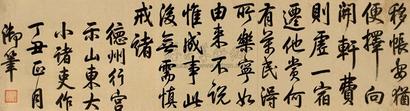 移帳安猶
便擇向
開軒費
則虛一宿
遷他賞何
有萬民得
所樂寧如
由來不說
惟成事此
後無需慎
戒諸
德州行宮
示山東大
小諸吏作
丁丑正月
御筆